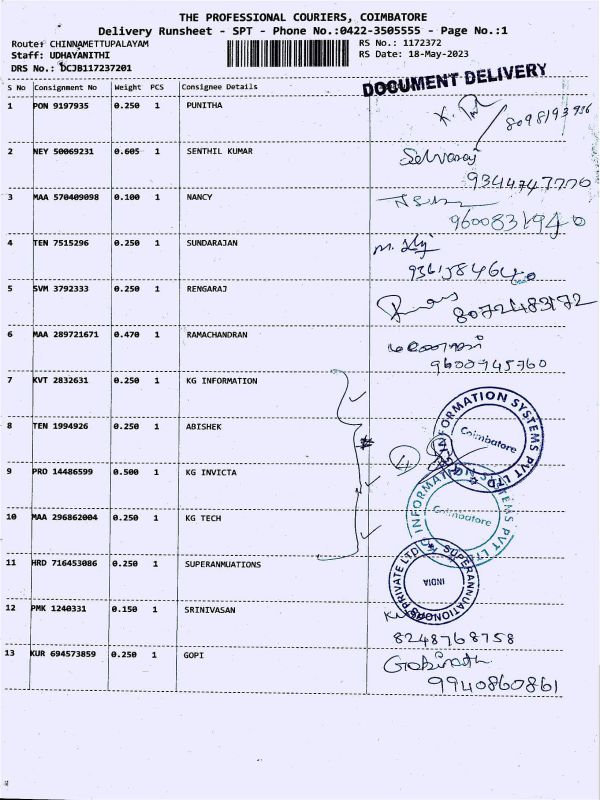 THE PROFESSIONAL COURIERS, COIMBATORE
Delivery Runsheet - SPT - Phone No.:0422-3505555 - Page No.:1
Route: CHINNAMETTUPALAYAM
Staff: UDHAYANITHI
DRS No.: DCJB117237201
RS No.: 1172372
RS Date: 18-May-2023
DOCUMENT DELIVERY
S No Consignment No Weight PCS Consignee Details
1 PON 9197935 0.250 1 PUNITHA
8098193936
2 NEY 50069231 0.605 1 SENTHIL KUMAR Selvaraj
9344747770
3 MAA 570409098 0.100 1 NANCY
9600831940
4 TEN 7515296 0.250 1 SUNDARAJAN
5 SVM 3792333 0.250 1 RENGARAJ
8072483172
6 MAA 289721671 0.470 1 RAMACHANDRAN
9600945760
7 KVT 2832631 0.250 1 KG INFORMATION
8 TEN 1994926 0.250 1 ABISHEK
9 PRO 14486599 0.500 1 KG INVICTA
10 MAA 296862004 0.250 1 KG TECH
11 HRD 716453086 0.250 1 SUPERANMUATIONS
12 PMK 1240331 0.150 1 SRINIVASAN
8248768758
13 KUR 694573859 0.250 1 GOPI Gobinath
9940860861
4
INFORMATION SYSTEMS PVT LTD
Coimbatore
INFORMATION SYSTEMS PVT LTD
Coimbatore
SUPERANNUATION PRIVATE LTD
INDIA